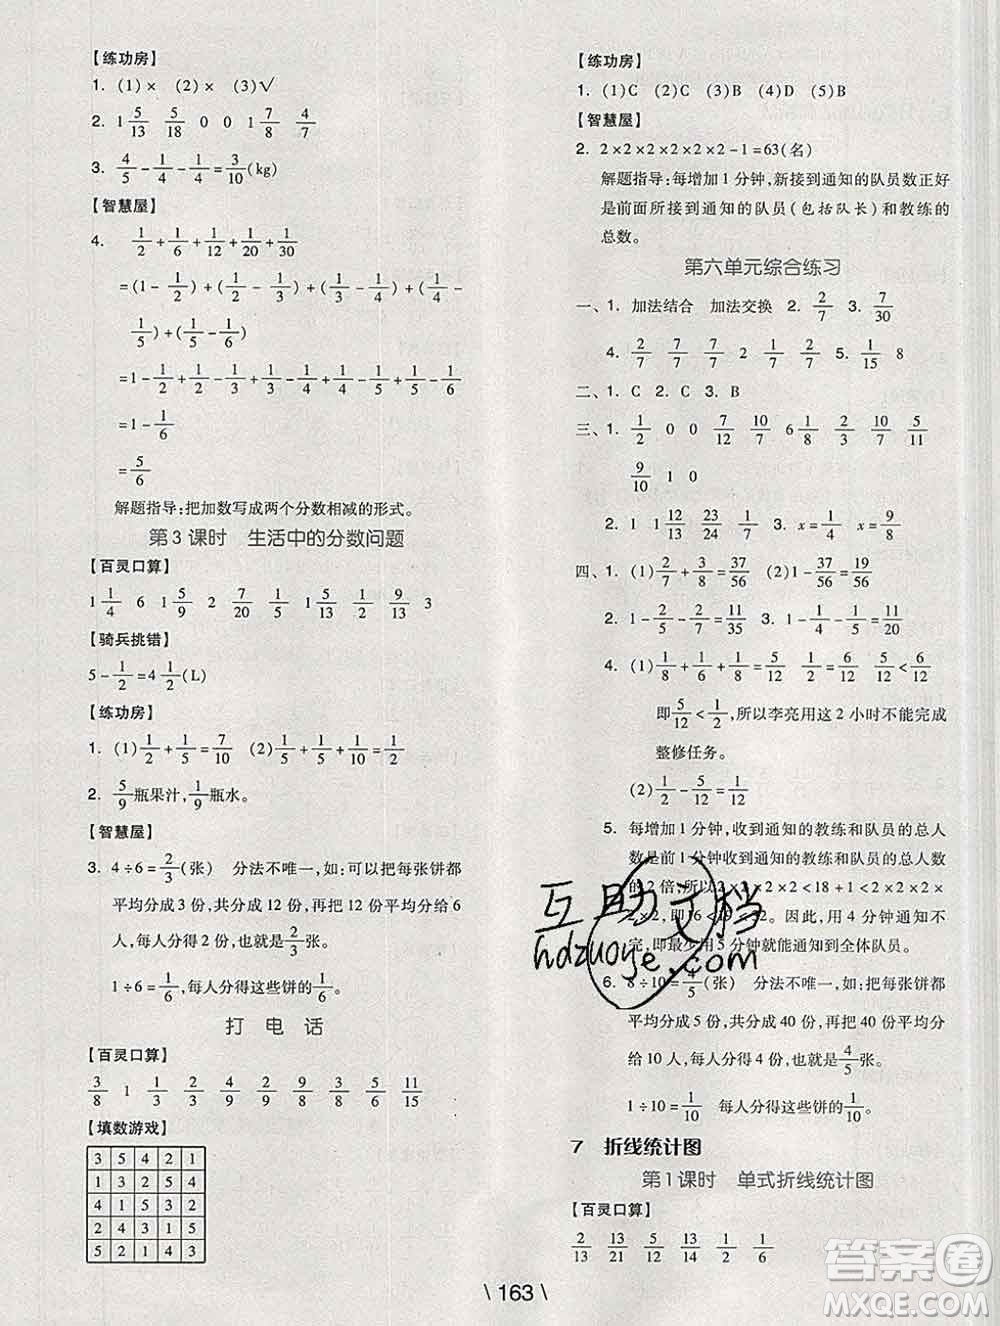 【练功房】
1. (1)× (2)× (3)√
2. 1 5/13 5/18 0 0 1 7/8 4/7
3. 4/5-1/4-1/4=3/10(kg)
【智慧屋】
4. 1/2+1/6+1/12+1/20+1/30
=(1-1/2)+(1/2-1/3)+(1/3-1/4)+(1/4-
1/5)+(1/5-1/6)
=1-1/2+1/2-1/3+1/3-1/4+1/4-1/5+1/5-1/6
=1-1/6
=5/6
解题指导:把加数写成两个分数相减的形式。
第3课时 生活中的分数问题
【百灵口算】
1 1/4 6 1 5/9 2 7/20 1 5/13 1/2 9/13 3
【骑兵挑错】
5-1/2=4 1/2(L)
【练功房】
1. (1)1/2+1/5=7/10 (2)1/2+1/5+1/5=9/10
2. 5/9瓶果汁,1/9瓶水。
【智慧屋】
3. 4÷6=2/3(张) 分法不唯一,如:可以把每张饼都
平均分成3份,共分成12份,再把12份平均分给6
人,每人分得2份,也就是2/3张。
1÷6=1/6,每人分得这些饼的1/6。
打 电 话
【百灵口算】
3/8 1 1/3 2/3 4/9 2/9 3/8 5/6 11/15
【填数游戏】
3 5 4 2 1
1 2 5 4 3
4 1 3 5 2
2 4 3 1 5
5 2 1 4 3
【练功房】
1. (1)C (2)C (3)B (4)D (5)B
【智慧屋】
2. 2×2×2×2×2×2-1=63(名)
解题指导:每增加1分钟,新接到通知的队员数正好
是前面所接到通知的队员(包括队长)和教练的
总数。
第六单元综合练习
一、1. 加法结合 加法交换 2. 2/7 3. 7/30
4. 2/7 7/7 7/7 2 1/7 2/7 5. 1/15 8
二、1. C 2. C 3. B
三、1. 1/2 0 0 7/12 10/7 6 1/2 2/9 10/9 5/11
9/10 1 0
2. 1 1 1/12 23/24 1/2 3. x=1/4 x=9/8
四、1. (1)2/7+3/8=37/56 (2)1-37/56=19/56
2. 1-2/5-2/7=11/35 3. 1-1/4-1/5=11/20
4. (1)1/8+1/6+1/8=5/12 1/2=6/12 5/12<6/12
即5/12<1/2,所以李亮用这2小时不能完成
整修任务。
(2)1/2-5/12=1/12
5. 每增加1分钟,收到通知的教练和队员的总人
数是前1分钟收到通知的教练和队员的总人数
的2倍,所以2×2×2×2<18+1<2×2×2×
2×2,即16<19<32。因此,用4分钟通知不
完,即最少用5分钟就能通知到全体队员。
6. 8÷10=4/5(张) 分法不唯一,如:把每张饼都
平均分成5份,共分成40份,再把40份平均分
给10人,每人分得4份,也就是4/5张。
1÷10=1/10 每人分得这些饼的1/10。
7 折线统计图
第1课时 单式折线统计图
【百灵口算】
2/13 13/21 5/12 13/14 1/2 1/6
\ 163 \
互助文档
hdzuoye.com
答案圈
MXQE.COM